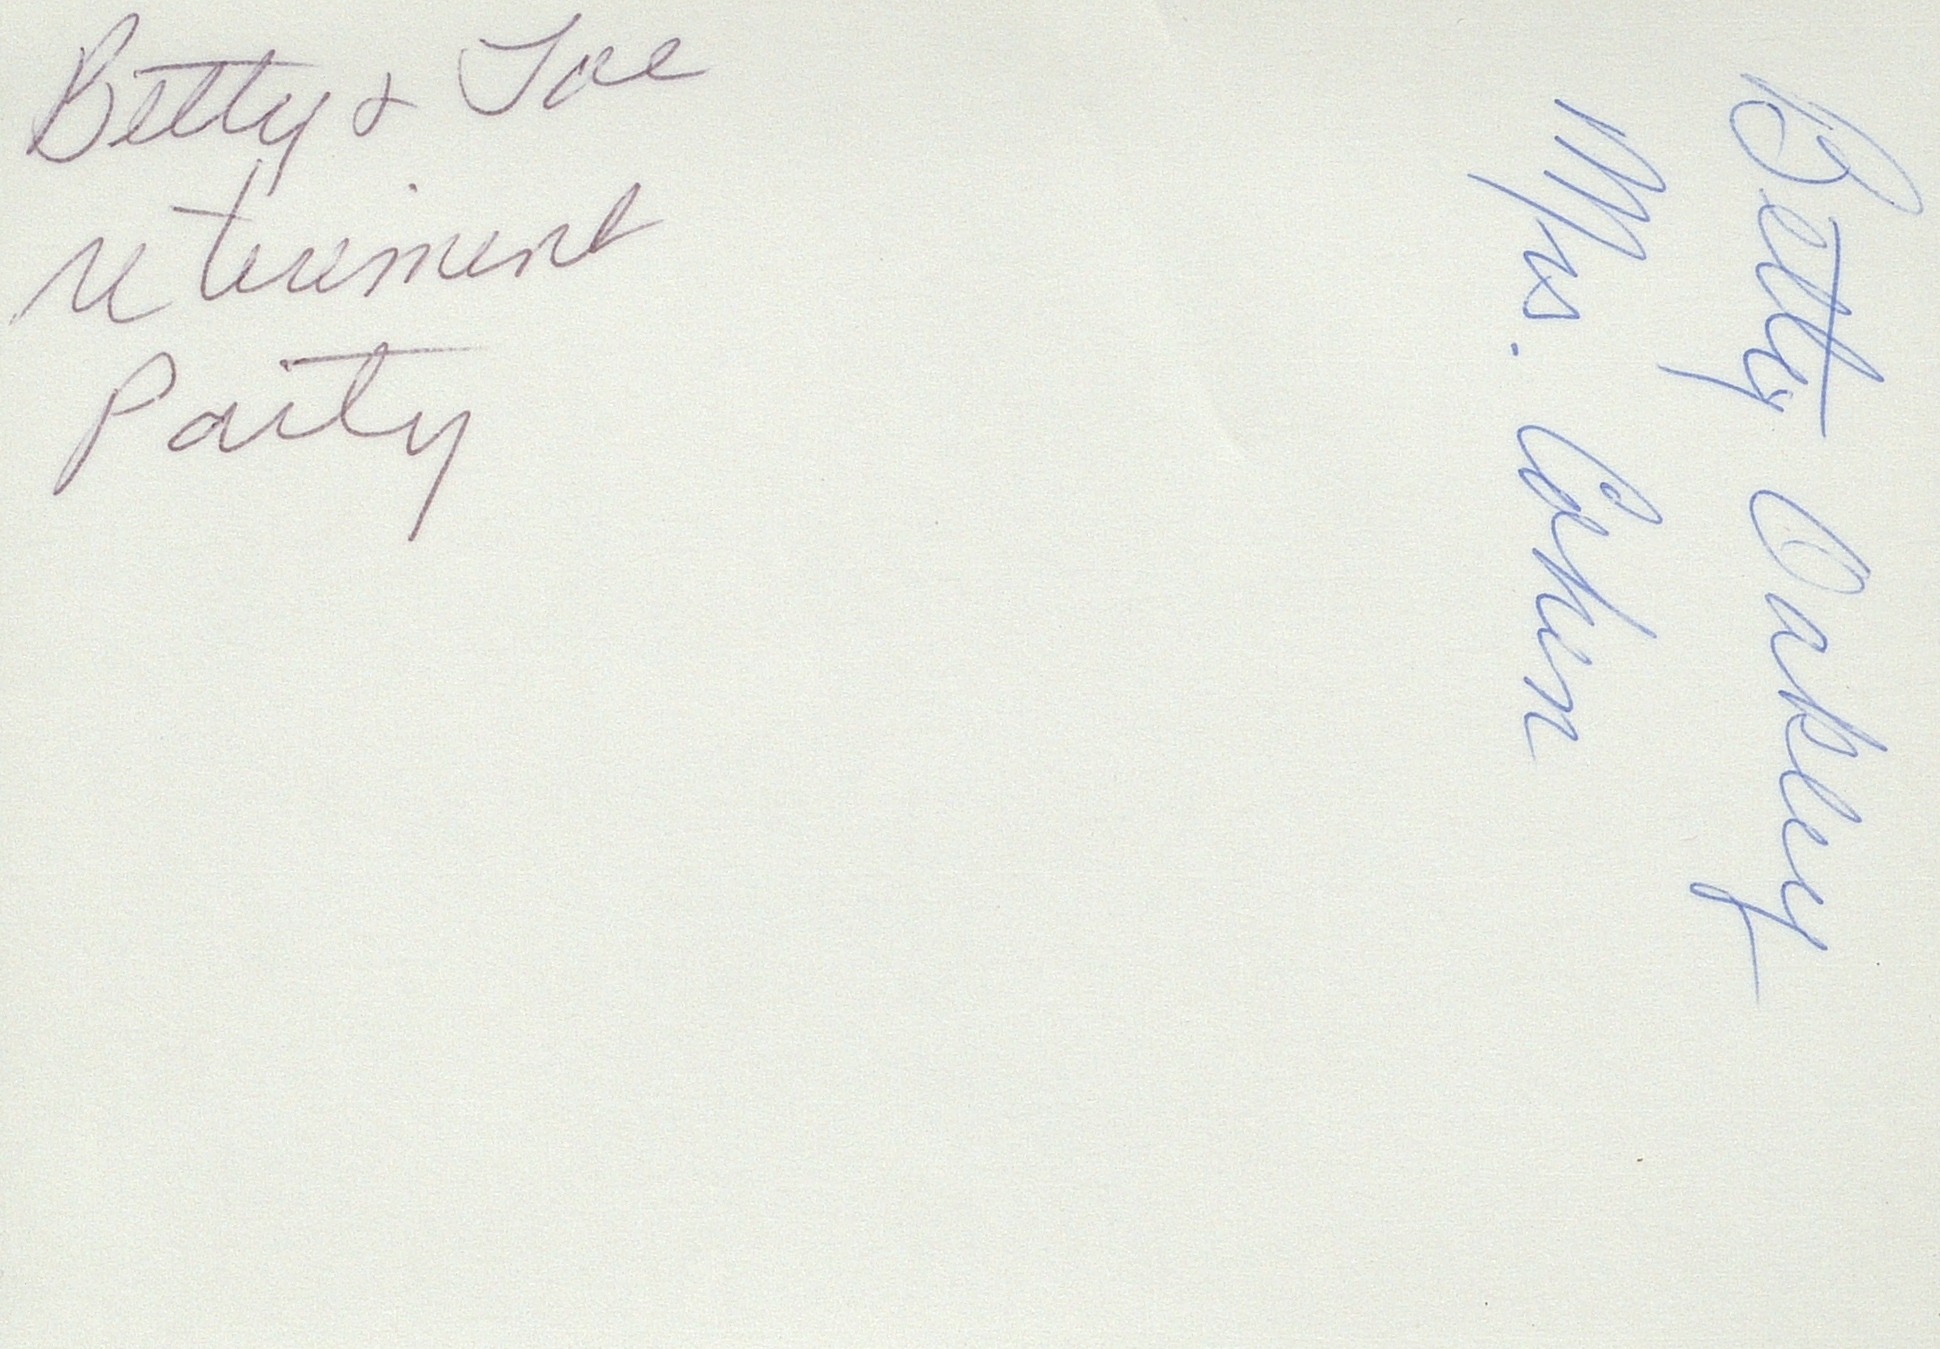 Betty & Joe
retirement
Party
Betty Oakley
Mrs. Cohen